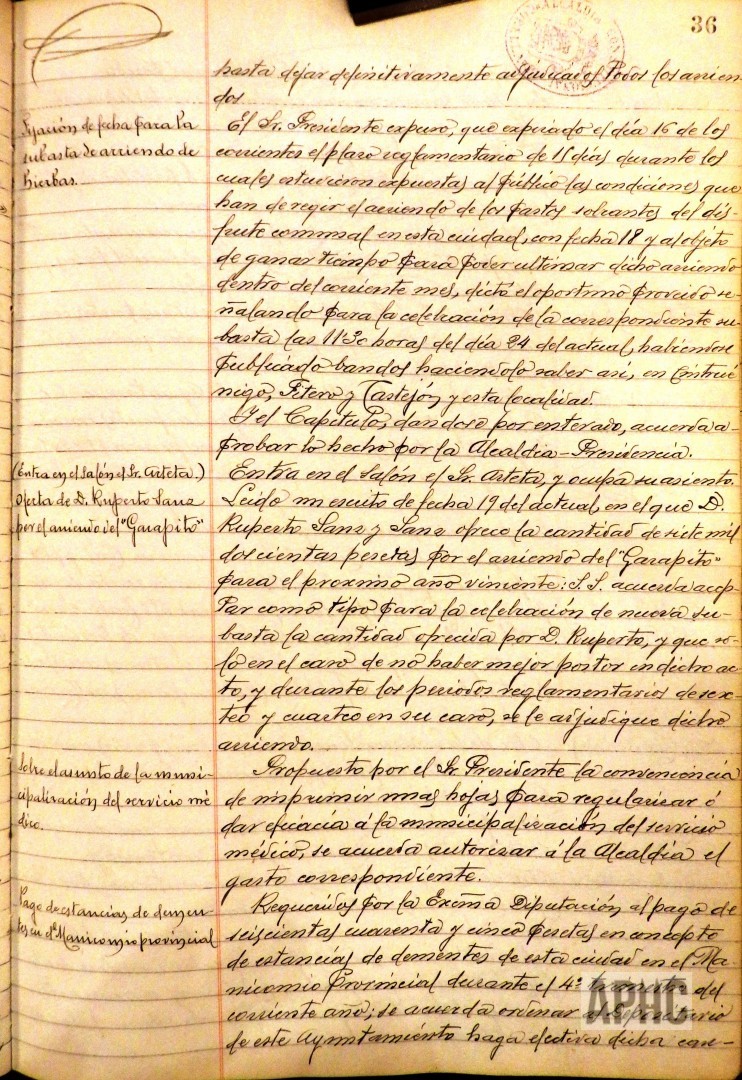 36
hasta dejar definitivamente adjudicados todos los arrien-
dos.
Fijación de fecha para la
subasta de arriendo de
hierbas.
El Sr. Presidente expuso, que expirado el día 16 de los
corrientes el plazo reglamentario de 15 días durante los
cuales estuvieron expuestas al público las condiciones que
han de regir el arriendo de los pastos sobrantes del dis-
frute comunal en esta ciudad, con fecha 18 y al objeto
de ganar tiempo para poder ultimar dicho arriendo
dentro del corriente mes, dictó el oportuno proveido se-
ñalando para la celebración de la correspondiente su-
basta las 11'30 horas del día 24 del actual, habiéndose
publicado bandos haciendolo saber así, en Cintrué-
nigo, Fitero y Castejón y esta localidad.
Y el Capítulo, dandose por enterado, acuerda a-
probar lo hecho por la Alcaldia-Presidencia.
(Entra en el salón el Sr. Arteta.)
Oferta de D. Ruperto Sanz
por el arriendo del "Garapito"
Entra en el salón el Sr. Arteta, y ocupa su asiento.
Leido un escrito de fecha 19 del actual, en el que D.
Ruperto Sanz y Sanz ofrece la cantidad de siete mil
doscientas pesetas por el arriendo del "Garapito"
para el proximo año viniente: S.S. acuerda acep-
tar como tipo para la celebración de nueva su-
basta la cantidad ofrecida por D. Ruperto, y que so-
lo en el caso de no haber mejor postor en dicho ac-
to, y durante los periodos reglamentarios de sex-
teo y cuarteo en su caso, se le adjudique dicho
arriendo.
Sobre el asunto de la muni-
cipalización del servicio mé-
dico.
Propuesto por el Sr. Presidente la conveniencia
de imprimir unas hojas para regularizar ó
dar eficacia á la municipalización del servicio
médico, se acuerda autorizar á la Alcaldía el
gasto correspondiente.
Pago de estancias de demen-
tes en el Manicomio provincial
Requeridos por la Excma Diputación al pago de
seiscientas cuarenta y cinco pesetas en concepto
de estancias de dementes de esta ciudad en el Ma-
nicomio Provincial durante el 4º trimestre del
corriente año; se acuerda ordenar al Depositario
de este Ayuntamiento haga efectiva dicha can-
APHC